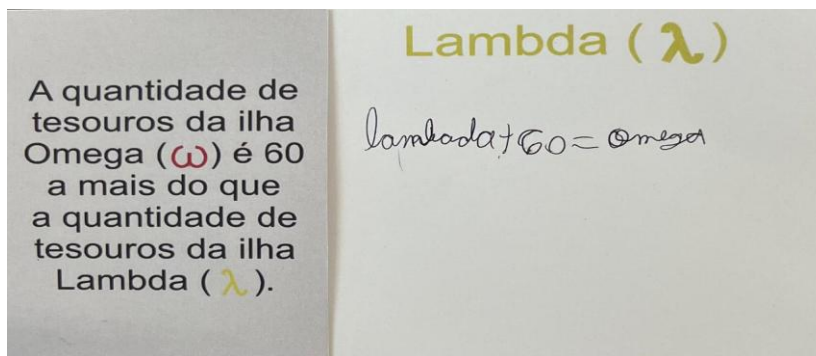 A quantidade de
tesouros da ilha
Omega (ω) é 60
a mais do que
a quantidade de
tesouros da ilha
Lambda ( λ ).
Lambda ( λ )
lambada + 60 = omega